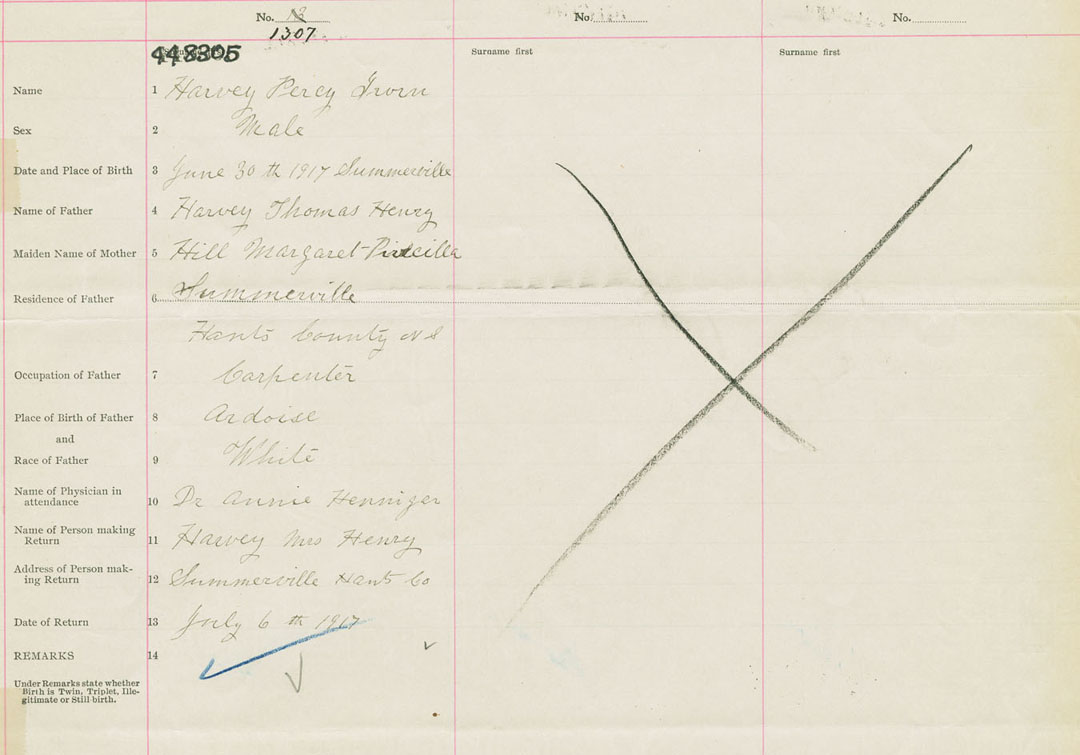 No. 12
1307
No.
No.
448305
Surname first
Surname first
Name 1 Harvey Percy
Sex 2 Male
Date and Place of Birth 3 June 30 th 1917 Summerville
Name of Father 4 Harvey Thomas Henry
Maiden Name of Mother 5 Hill Margaret
Residence of Father 6 Summerville
Hants County N S
Occupation of Father 7 Carpenter
Place of Birth of Father 8 Ardoise
and
Race of Father 9 White
Name of Physician in
attendance 10 Dr Annie Henniger
Name of Person making
Return 11 Harvey Mrs Henry
Address of Person mak-
ing Return 12 Summerville Hants Co
Date of Return 13 July 6 th 1917
REMARKS 14
Under Remarks state whether
Birth is Twin, Triplet, Ille-
gitimate or Still-birth.